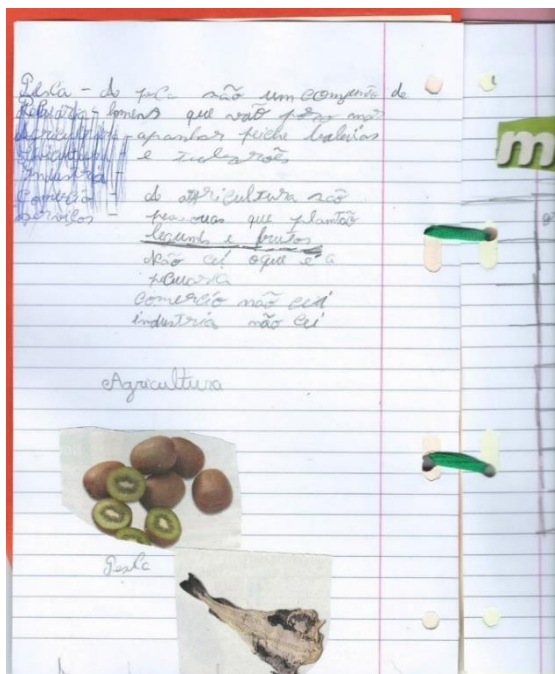 Pesca - A peca são um comjunto de
Pecuária - homens que vão para mar
Agricultura - apanhar peiche baleias
e tubarões
Industra -
Comercio
serviços -
A agricultura são
pessouas que plantão
legums e frutos
Não cei oque é a
pecuara
Comercio não cei
industria não cei
Agricultura
Pesca
m